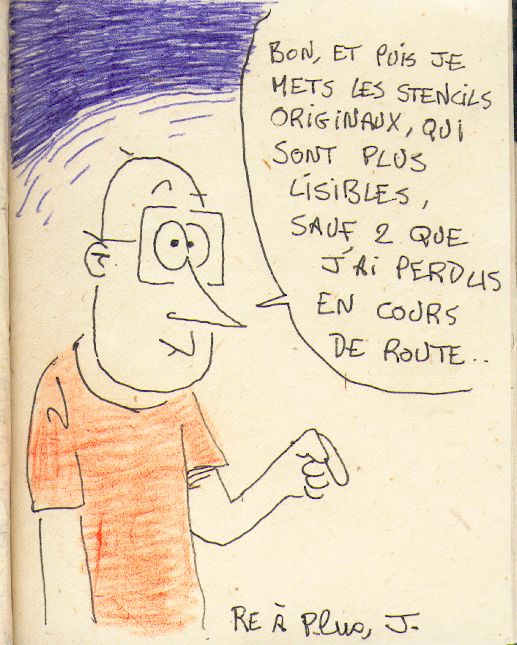 BON, ET PUIS JE
METS LES STENCILS
ORIGINAUX, QUI
SONT PLUS
LISIBLES,
SAUF 2 QUE
J'AI PERDUS
EN COURS
DE ROUTE..
RE À Plus, J.